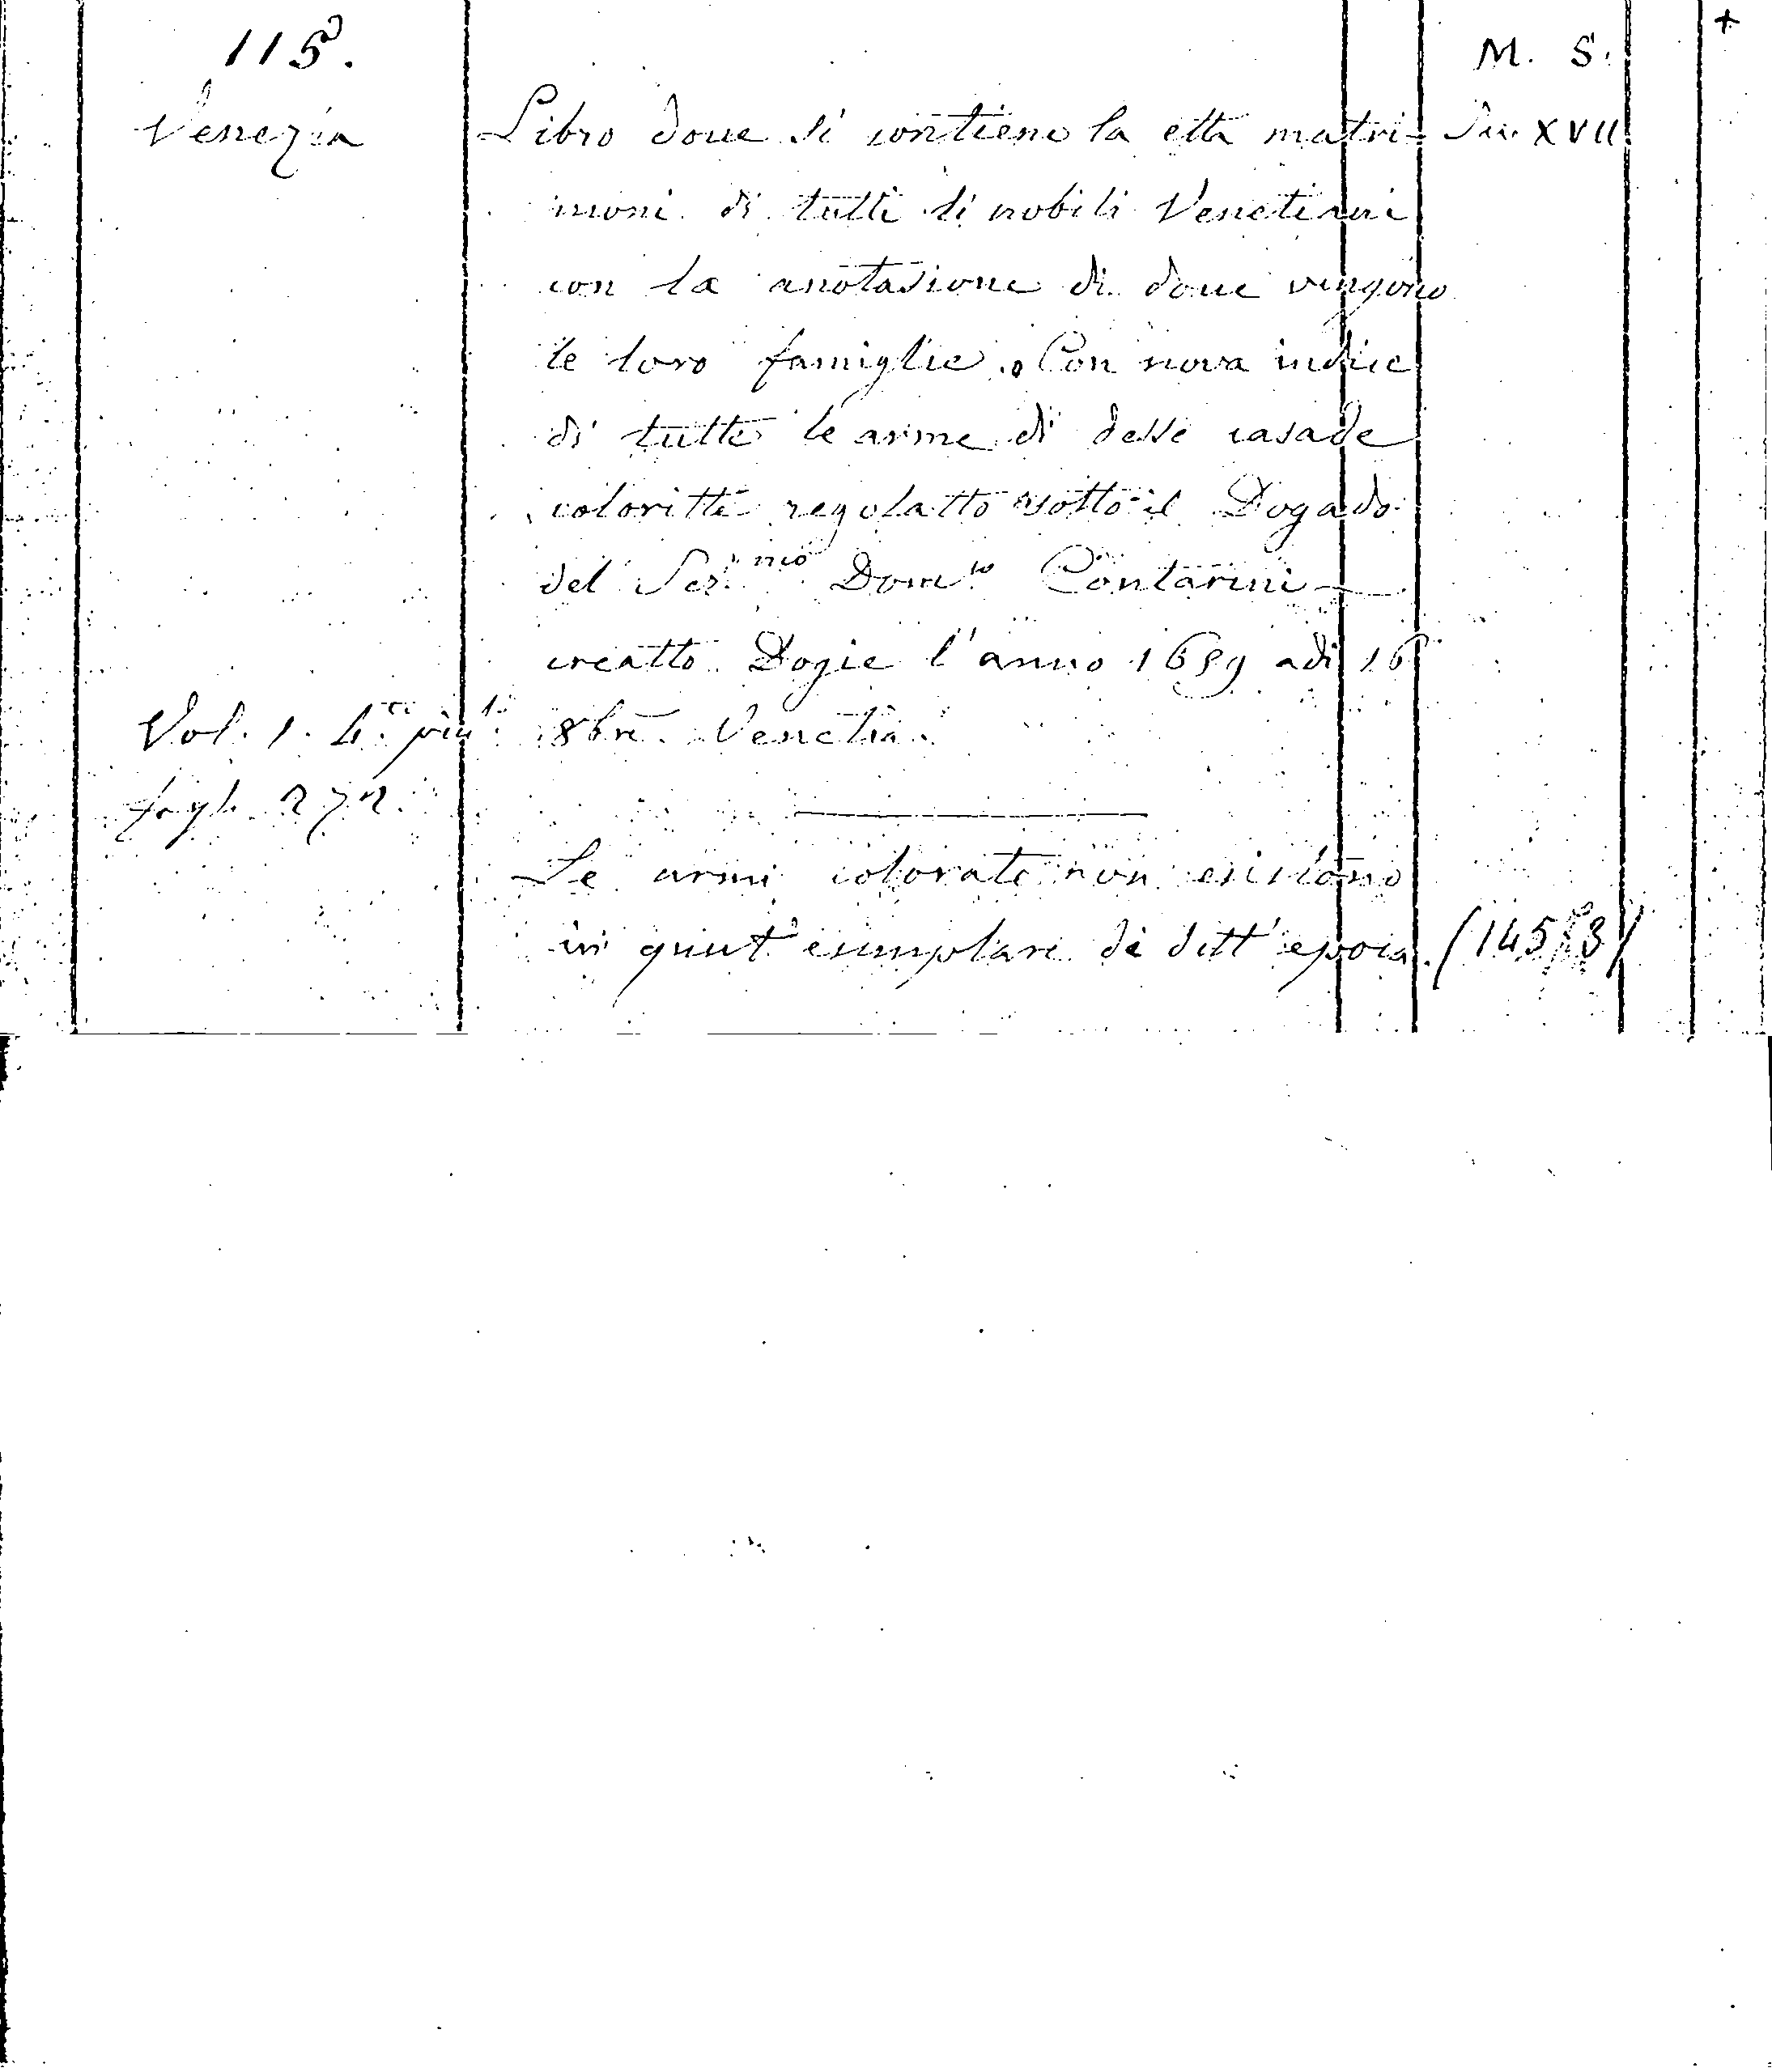 115.
M. S.
+
Venezia
Libro doue si contiene la etta matri-
Sec. XVII
moni di tutti li nobili Venetiani
con la anotasione di doue vengono
le loro famiglie. Con nova indice
di tutte le arme di desse casade
coloritte regolatto sotto il Dogado
del Ser.mo Dom.co Contarini
creatto Dogie l'anno 1659 adi 16
8bre. Venetia.
Vol. 1. 4.
fogl. 272.
Le armi colorate non esistono
in quest'esemplare di dett'epoca.
(145 3)